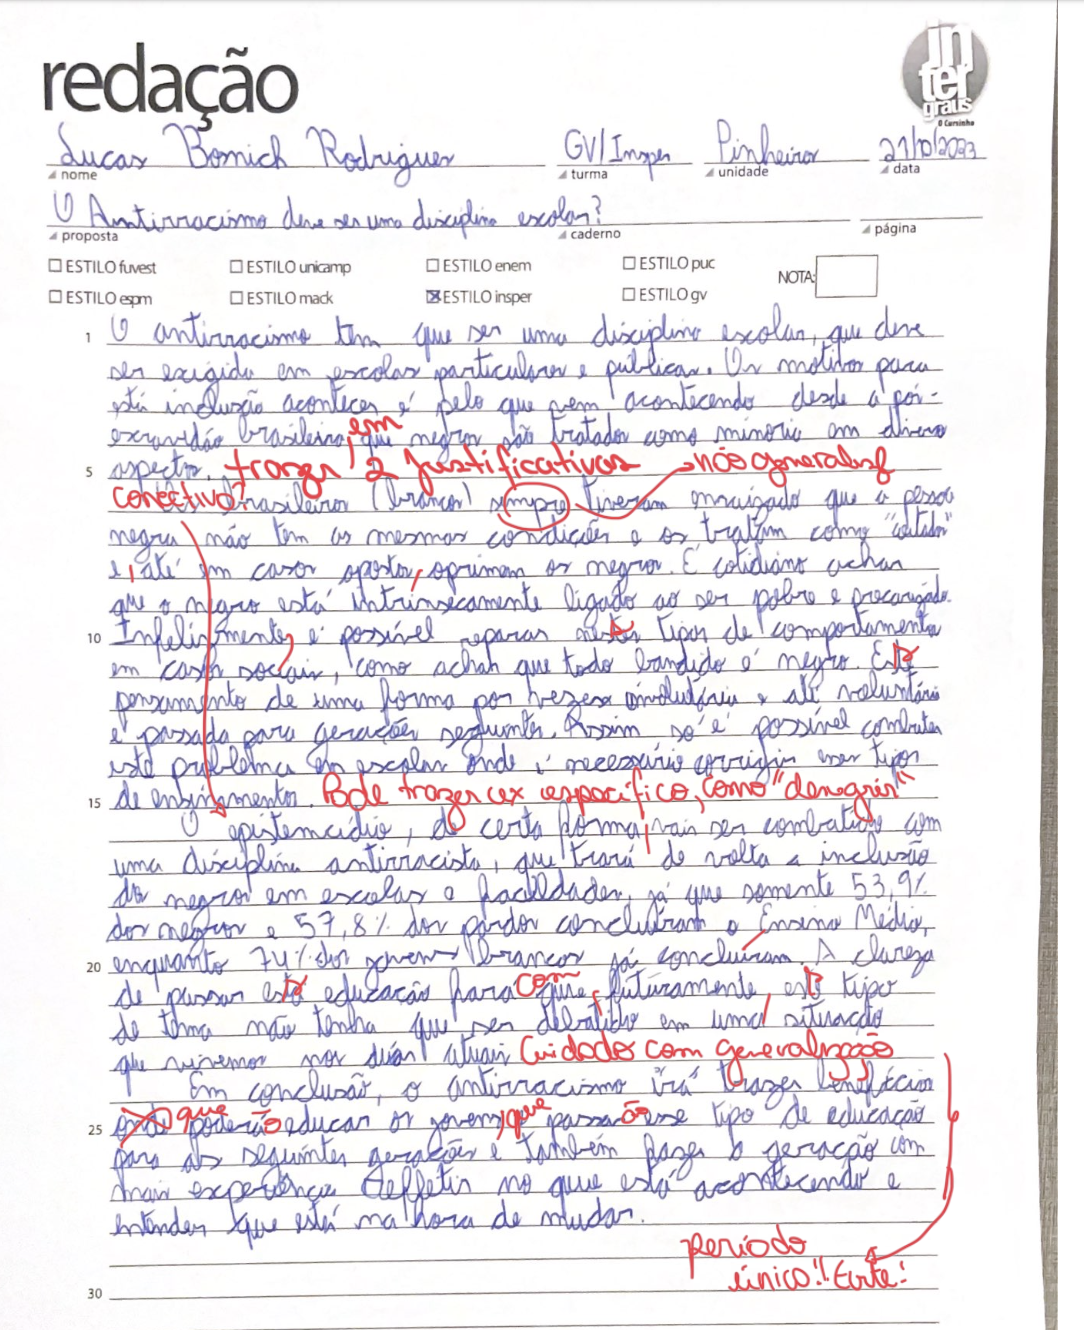 redação
inter
graus
O Cursinho
Lucas Bomich Rodrigues GV/Insper Pinheiros 21/10/2023
nome turma unidade data
O Antirracismo deve ser uma disciplina escolar?
proposta caderno página
ESTILO fuvest ESTILO unicamp ESTILO enem ESTILO puc NOTA:
ESTILO espm ESTILO mack ESTILO insper ESTILO gv
1 O antirracismo tem que ser uma disciplina escolar, que deve
ser exigida em escolas particulares e públicas. Os motivos para
está inclusão acontecer é pelo que vem acontecendo desde a pós-
escravidão brasileira, em que negros são tratados como minoria em diversos
5 aspectos. trazer 2 justificativas não generalize
conectivo? brasileiros (brancos) sempre tiveram enraizado que a pessoa
negra não tem as mesmas condições e os tratam como "coitados"
e, até em casos opostos, oprimem os negros. É cotidiano achar
que o negro está intrinsecamente ligado ao ser pobre e precarizado.
10 Infelizmente, é possível reparar nestes tipos de comportamento
em casos sociais, como achar que todo bandido é negro. Este
pensamento de uma forma por vezes involuntária e até voluntária
é passada para gerações seguintes. Assim só é possível combater
este problema em escolas onde é necessário corrigir esses tipos
15 de ensinamentos. Pode trazer ex específico, como "denegrir"
O epistemicídio, de certa forma, vai ser combatido com
uma disciplina antirracista, que trará de volta a inclusão
de negros em escolas e faculdades, já que somente 53,9%
dos negros e 57,8% dos pardos concluíram o Ensino Médio,
20 enquanto 74% dos jovens brancos já concluíram. A clareza
de passar esta educação para com que, futuramente, este tipo
de tema não tenha que ser debatido em uma situação
que vivemos nos dias atuais Cuidados com generalização
Em conclusão, o antirracismo irá trazer benefícios
25 onde que poderão educar os jovens, que passarão esse tipo de educação
para as seguintes gerações e também fazer a geração com
mais experiência refletir no que está acontecendo e
entender que está na hora de mudar.
período
único!! Evite!
30